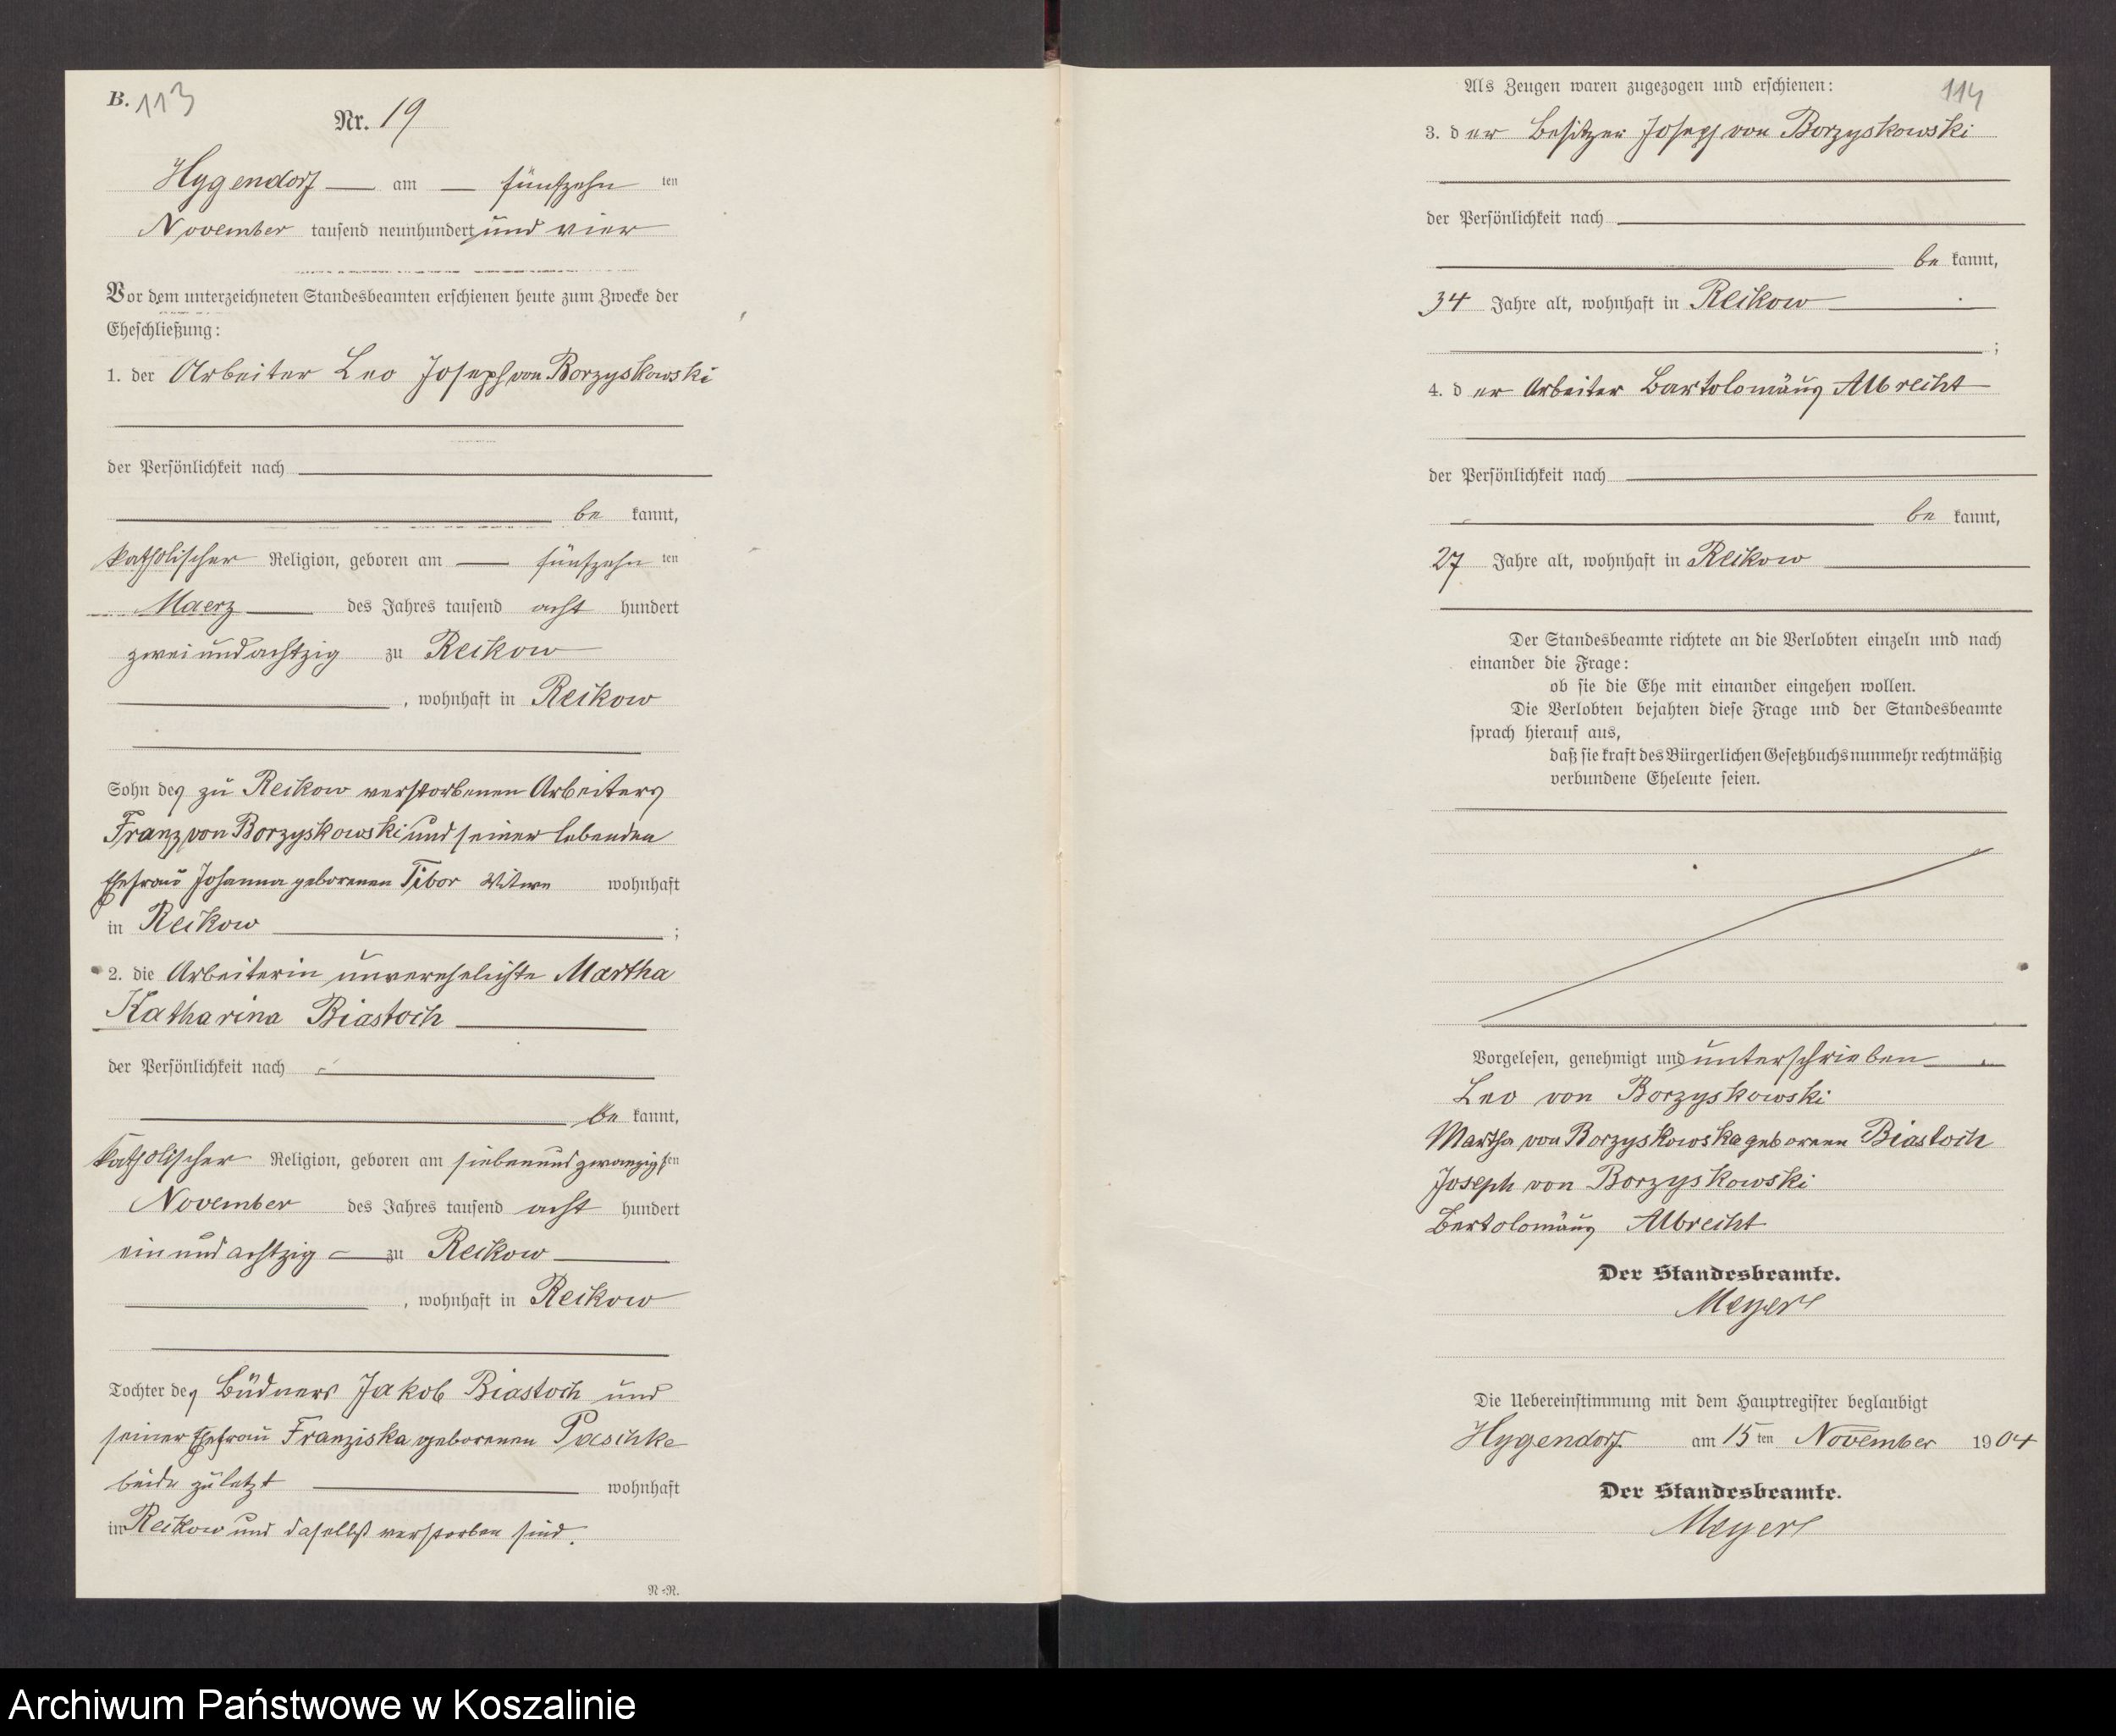 B. 113
Nr. 19
Hygendorf am fünfzehn ten
November tausend neunhundert und vier
Vor dem unterzeichneten Standesbeamten erschienen heute zum Zwecke der
Eheschließung:
1. der Arbeiter Leo Joseph von Borzyskowski
der Persönlichkeit nach
be kannt,
katholischer Religion, geboren am fünfzehn ten
Maerz des Jahres tausend acht hundert
zwei und achtzig zu Reikow
, wohnhaft in Reikow
Sohn des zu Reikow verstorbenen Arbeiters
Franz von Borzyskowski und seiner lebenden
Ehefrau Johanna geborenen Tibor Witwe wohnhaft
in Reikow ;
2. die Arbeiterin unverehelichte Martha
Katharina Biastoch
der Persönlichkeit nach
be kannt,
katholischer Religion, geboren am siebenundzwanzigsten
November des Jahres tausend acht hundert
ein und achtzig zu Reikow
, wohnhaft in Reikow
Tochter des Büdners Jakob Biastoch und
seiner Ehefrau Franziska geborenen Paschke
beide zuletzt wohnhaft
in Reikow und daselbst verstorben sind.
N-N.
Als Zeugen waren zugezogen und erschienen: 114
3. der Besitzer Joseph von Borzyskowski
der Persönlichkeit nach
be kannt,
34 Jahre alt, wohnhaft in Reikow
;
4. der Arbeiter Bartolomäus Albrecht
der Persönlichkeit nach
be kannt,
27 Jahre alt, wohnhaft in Reikow
Der Standesbeamte richtete an die Verlobten einzeln und nach
einander die Frage:
ob sie die Ehe mit einander eingehen wollen.
Die Verlobten bejahten diese Frage und der Standesbeamte
sprach hierauf aus,
daß sie kraft des Bürgerlichen Gesetzbuchs nunmehr rechtmäßig
verbundene Eheleute seien.
Vorgelesen, genehmigt und unterschrieben
Leo von Borzyskowski
Martha von Borzyskowska geborene Biastoch
Joseph von Borzyskowski
Bartolomäus Albrecht
Der Standesbeamte.
Meyer
Die Uebereinstimmung mit dem Hauptregister beglaubigt
Hygendorf am 15 ten November 1904
Der Standesbeamte.
Meyer
Archiwum Państwowe w Koszalinie